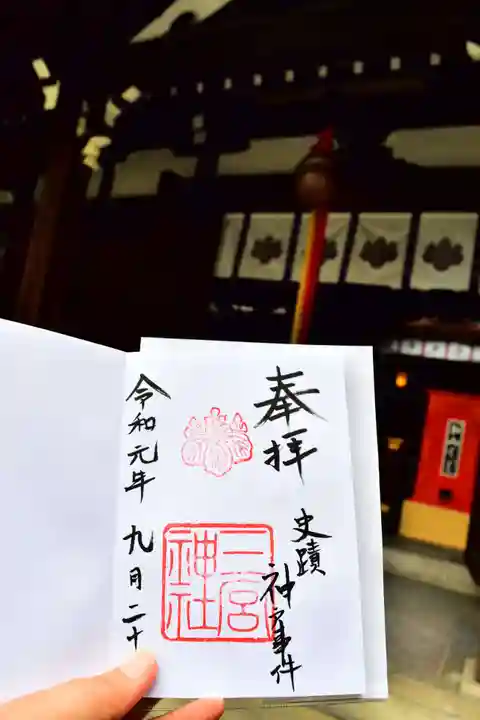 奉拝
史蹟
神戸事件
三宮
神社
令和元年 九月二十